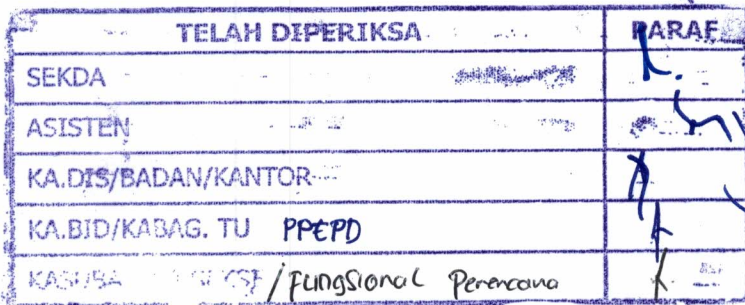 TELAH DIPERIKSA PARAF
SEKDA
ASISTEN
KA.DIS/BADAN/KANTOR
KA.BID/KABAG. TU PPEPD
/Fungsional Perencana